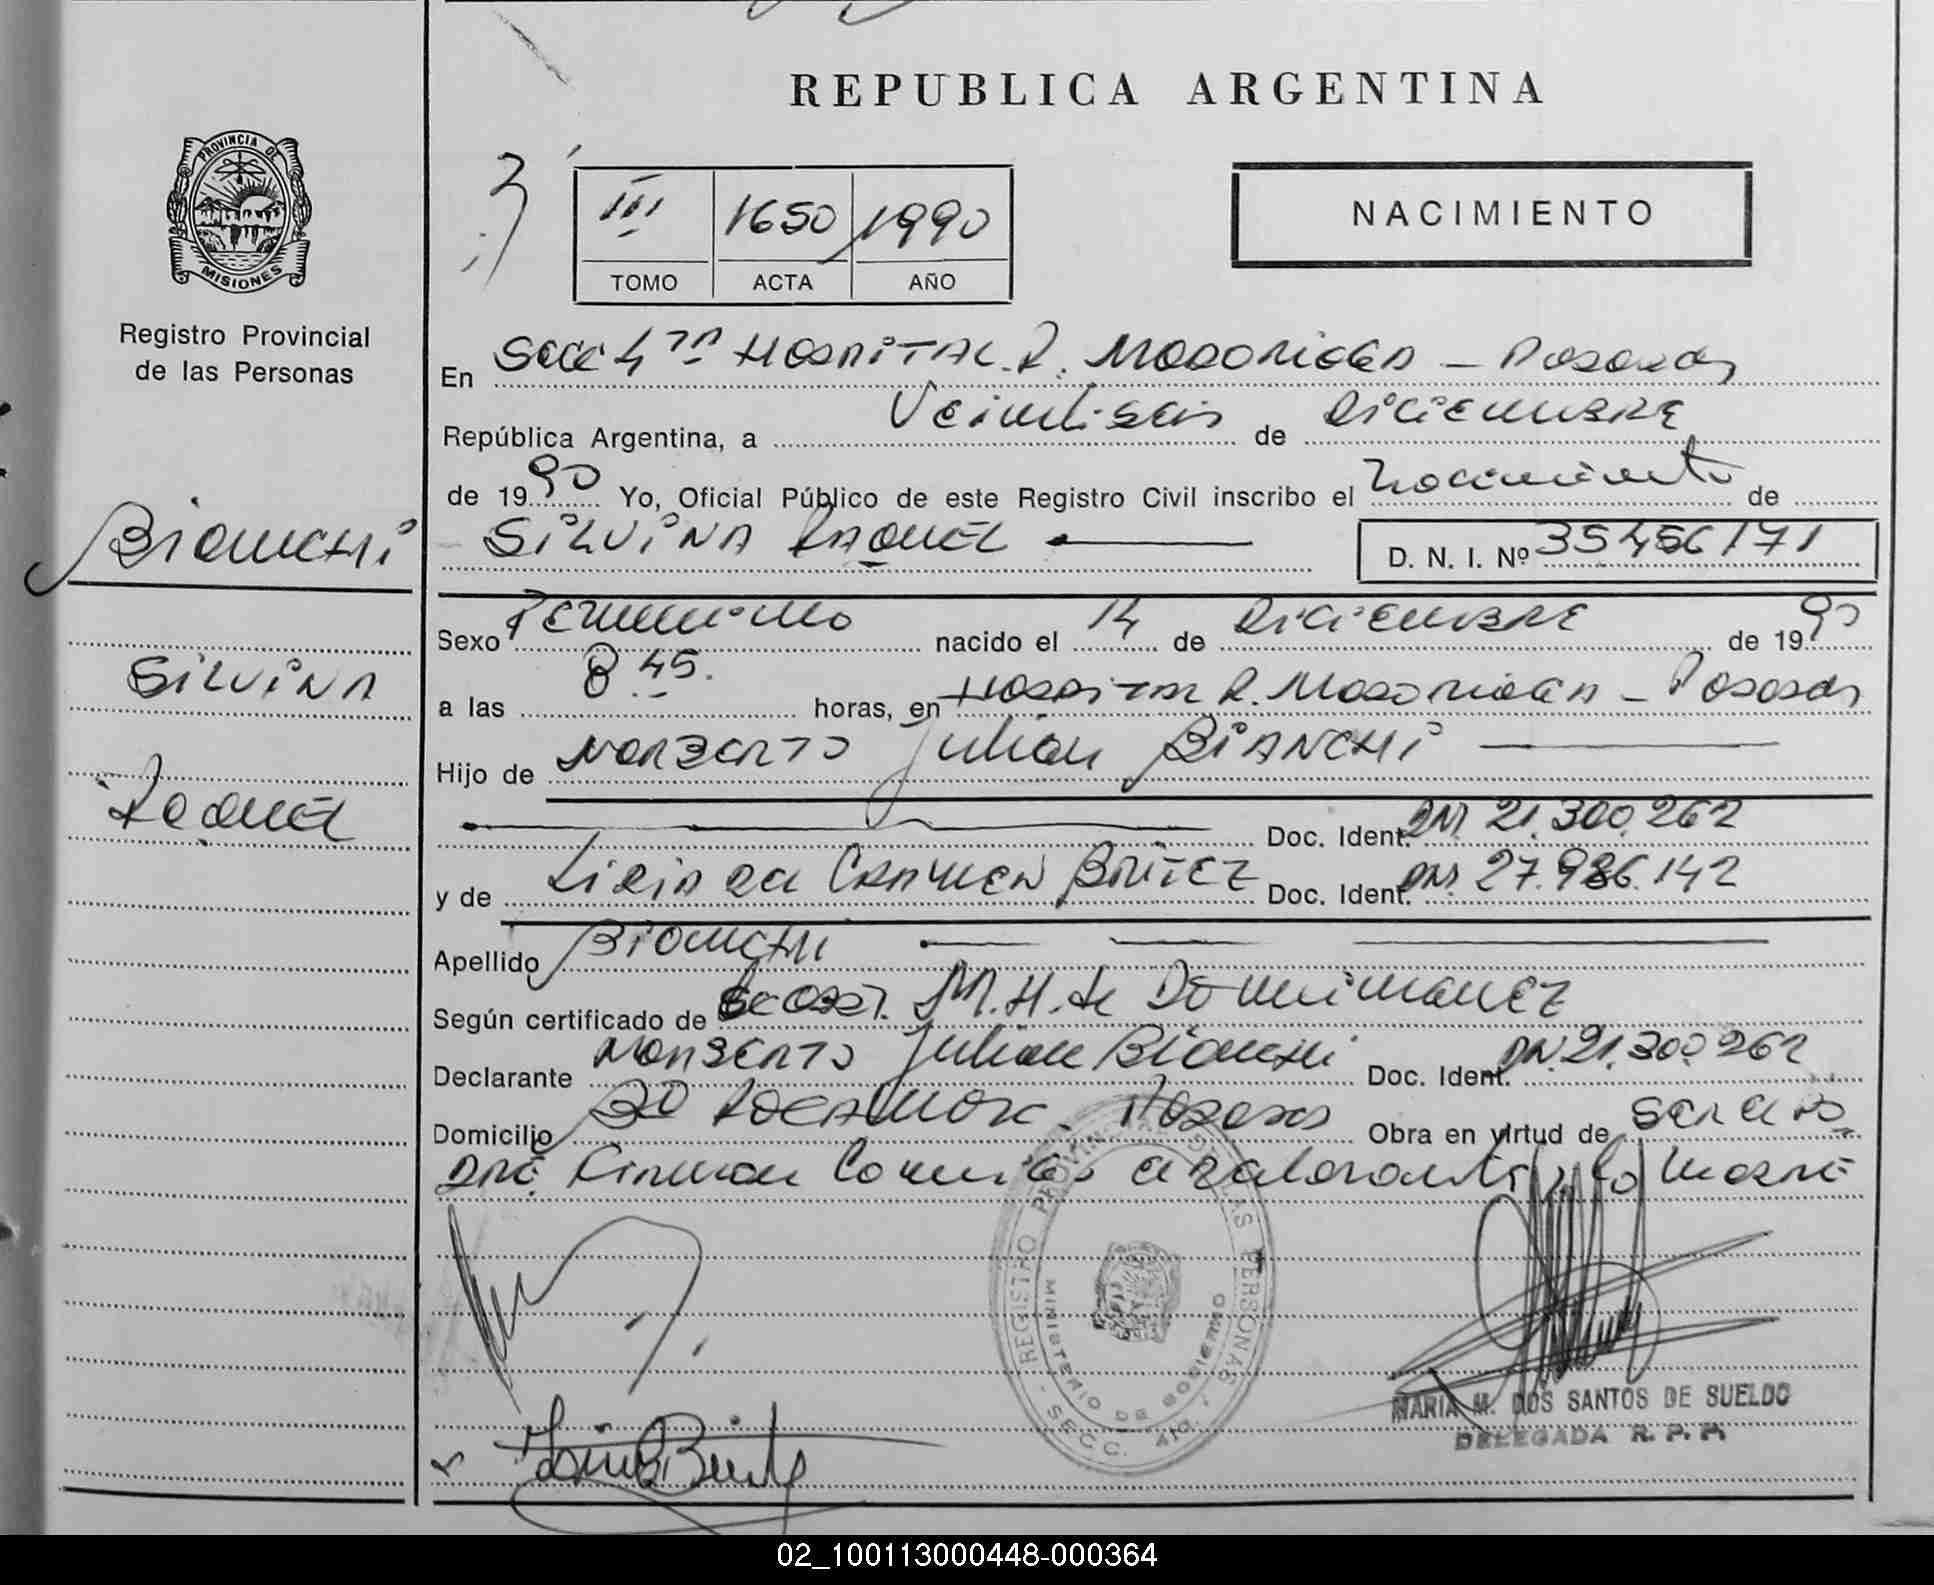 REPUBLICA ARGENTINA
PROVINCIA DE
MISIONES
Registro Provincial
de las Personas
III 1650 1990
TOMO ACTA AÑO
NACIMIENTO
En Secc 4ta HOSPITAL R. MADARIAGA - Posadas
República Argentina, a Veintiseis de DICIEMBRE
de 1990 Yo, Oficial Público de este Registro Civil inscribo el nacimiento de
SILVINA RAQUEL D. N. I. Nº 35456171
Bianchi
SILVINA
Raquel
Sexo Femenino nacido el 14 de DICIEMBRE de 1990
a las 8 45. horas, en HOSPITAL R. MADARIAGA - Posadas
Hijo de NORBERTO Julian BIANCHI
Doc. Ident. DNI 21.300.262
y de CARMEN BRITEZ Doc. Ident. DNI 27.986.142
Apellido Bianchi
Según certificado de M. H. de DOMINGUEZ
Declarante NORBERTO Julian Bianchi Doc. Ident. DNI 21.300.262
Domicilio Bo ROCAMORA Posadas Obra en virtud de ser el
padre. Firman la madre
REGISTRO PROVINCIAL DE LAS PERSONAS
MINISTERIO DE GOBIERNO
SECC.
MARIA M. DOS SANTOS DE SUELDO
DELEGADA R. P. P.
02_100113000448-000364